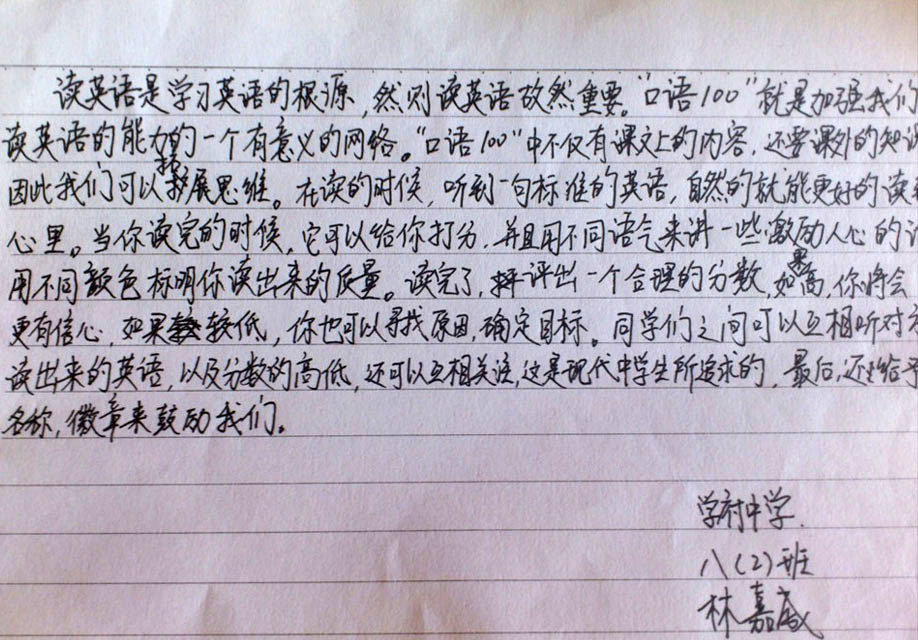 读英语是学习英语的根源,然则读英语故然重要。“口语100”就是加强我们
读英语的能力的一个有意义的网络。“口语100”中不仅有课文上的内容,还要课外的知识
因此我们可以拓展思维。在读的时候,听到一句标准的英语,自然的就能更好的读
心里。当你读完的时候,它可以给你打分,并且用不同语气来讲一些激励人心的
用不同颜色标明你读出来的质量。读完了,评出一个合理的分数,如果高,你将会
更有信心,如果较低,你也可以寻找原因,确定目标。同学们之间可以互相听对
读出来的英语,以及分数的高低,还可以互相关注,这是现代中学生所追求的,最后,还给予
名称,徽章来鼓励我们。
学府中学.
八(2)班
林嘉威